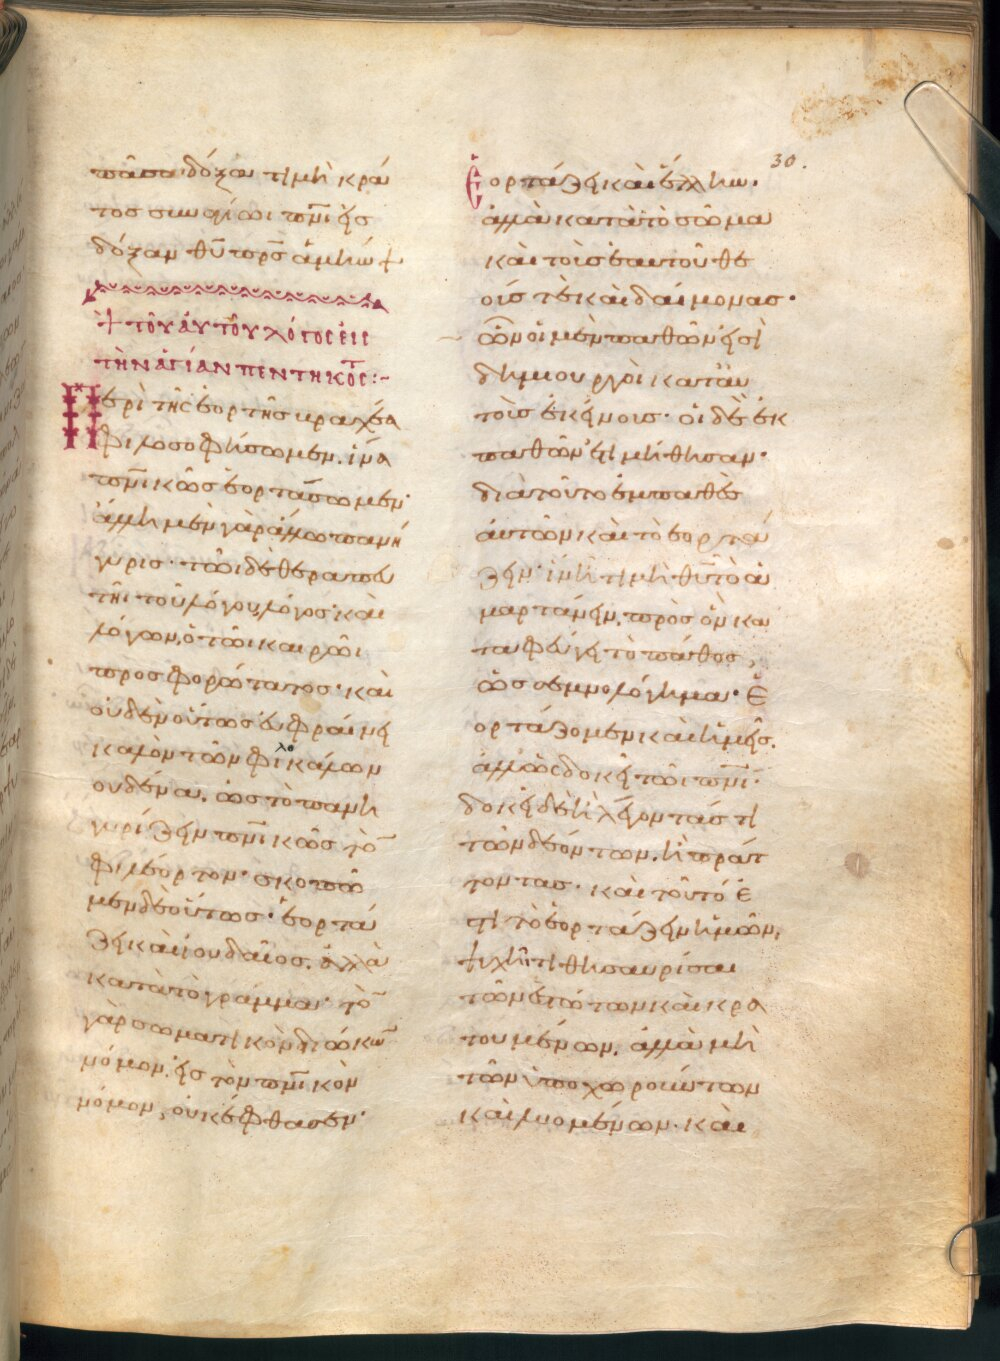 πᾶσα δόξα τιμὴ κρά
τος σὺν ἁγίωι πν̅ι εἰς
δόξαν θῦ πρ̅ς ἀμήν +
+ τοῦ αὐτοῦ λόγος εἰς
τὴν ἁγίαν πεντηκος:~
Περὶ τῆς ἑορτῆς βραχέα
φιλοσοφήσωμεν. ἵνα
πν̅ικῶς ἑορτάσωμεν·
ἄλλη μὲν γὰρ ἄλλω πανή
γυρις· τῶι δὲ θεραπευ
τῆι τοῦ λόγου, λόγος· καὶ
λόγων, ὁ τῶι καιρῶι
προσφορώτατος· καὶ
οὐδὲν οὕτως εὐφραίνει
καλὸν τῶν φιλοκάλων
οὐδένα. ὡς τὸ πανη
γυρίζειν πν̅ικῶς τὸ̅
φιλέορτον· σκοπῶ
μεν δὲ οὕτως· ἑορτά
ζει καὶ ἰουδαῖος. ἀλλὰ
κατὰ τὸ γράμμα· τὸ̅
γὰρ σωματικὸν διώκω̅
νόμον. εἰς τὸν πν̅ικὸν
νόμον, οὐκ ἔφθασεν·
30.
Ἑορτάζει καὶ ἕλλην.
ἀλλὰ κατὰ τὸ σῶμα
καὶ τοῖς ἑαυτοῦ θε
οίς τὲ καὶ δαίμονας·
ὧν οἱ μὲν παθῶν εἰσὶ
δημιουργοὶ κατ᾽ αυ
τοὶς ἐκείνοις· οἱ δὲ ἐκ
παθῶν ἐτιμήθησαν·
διὰ τοῦτο ἐμπαθὲς
αὐτῶν καὶ τὸ ἑορτά
ζειν· ἵν᾽ ἦ τιμὴ θῦ τὸ ἁ
μαρτάνειν. πρὸς ὃν κα
ταφεύγει τὸ πάθος,
ὡς σεμνολόγημα· Ἑ
ορτάζομεν καὶ ἡμεῖς.
ἀλλ᾽ ὡς δοκεῖ τῶι πν̅ι·
δοκεῖ δὲ ἢ λέγοντάς τι
τῶν δεόντων. ἢ πράτ
τοντας· καὶ τοῦτό ἐ
στι τὸ ἑορτάζειν ἡμῶν,
ψυχῆι τι θησαυρίσαι
τῶν ἑστώτων καὶ κρα
τουμένων. ἀλλὰ μὴ
τῶν ὑποχωρούντων
καὶ λυομένων· καὶ